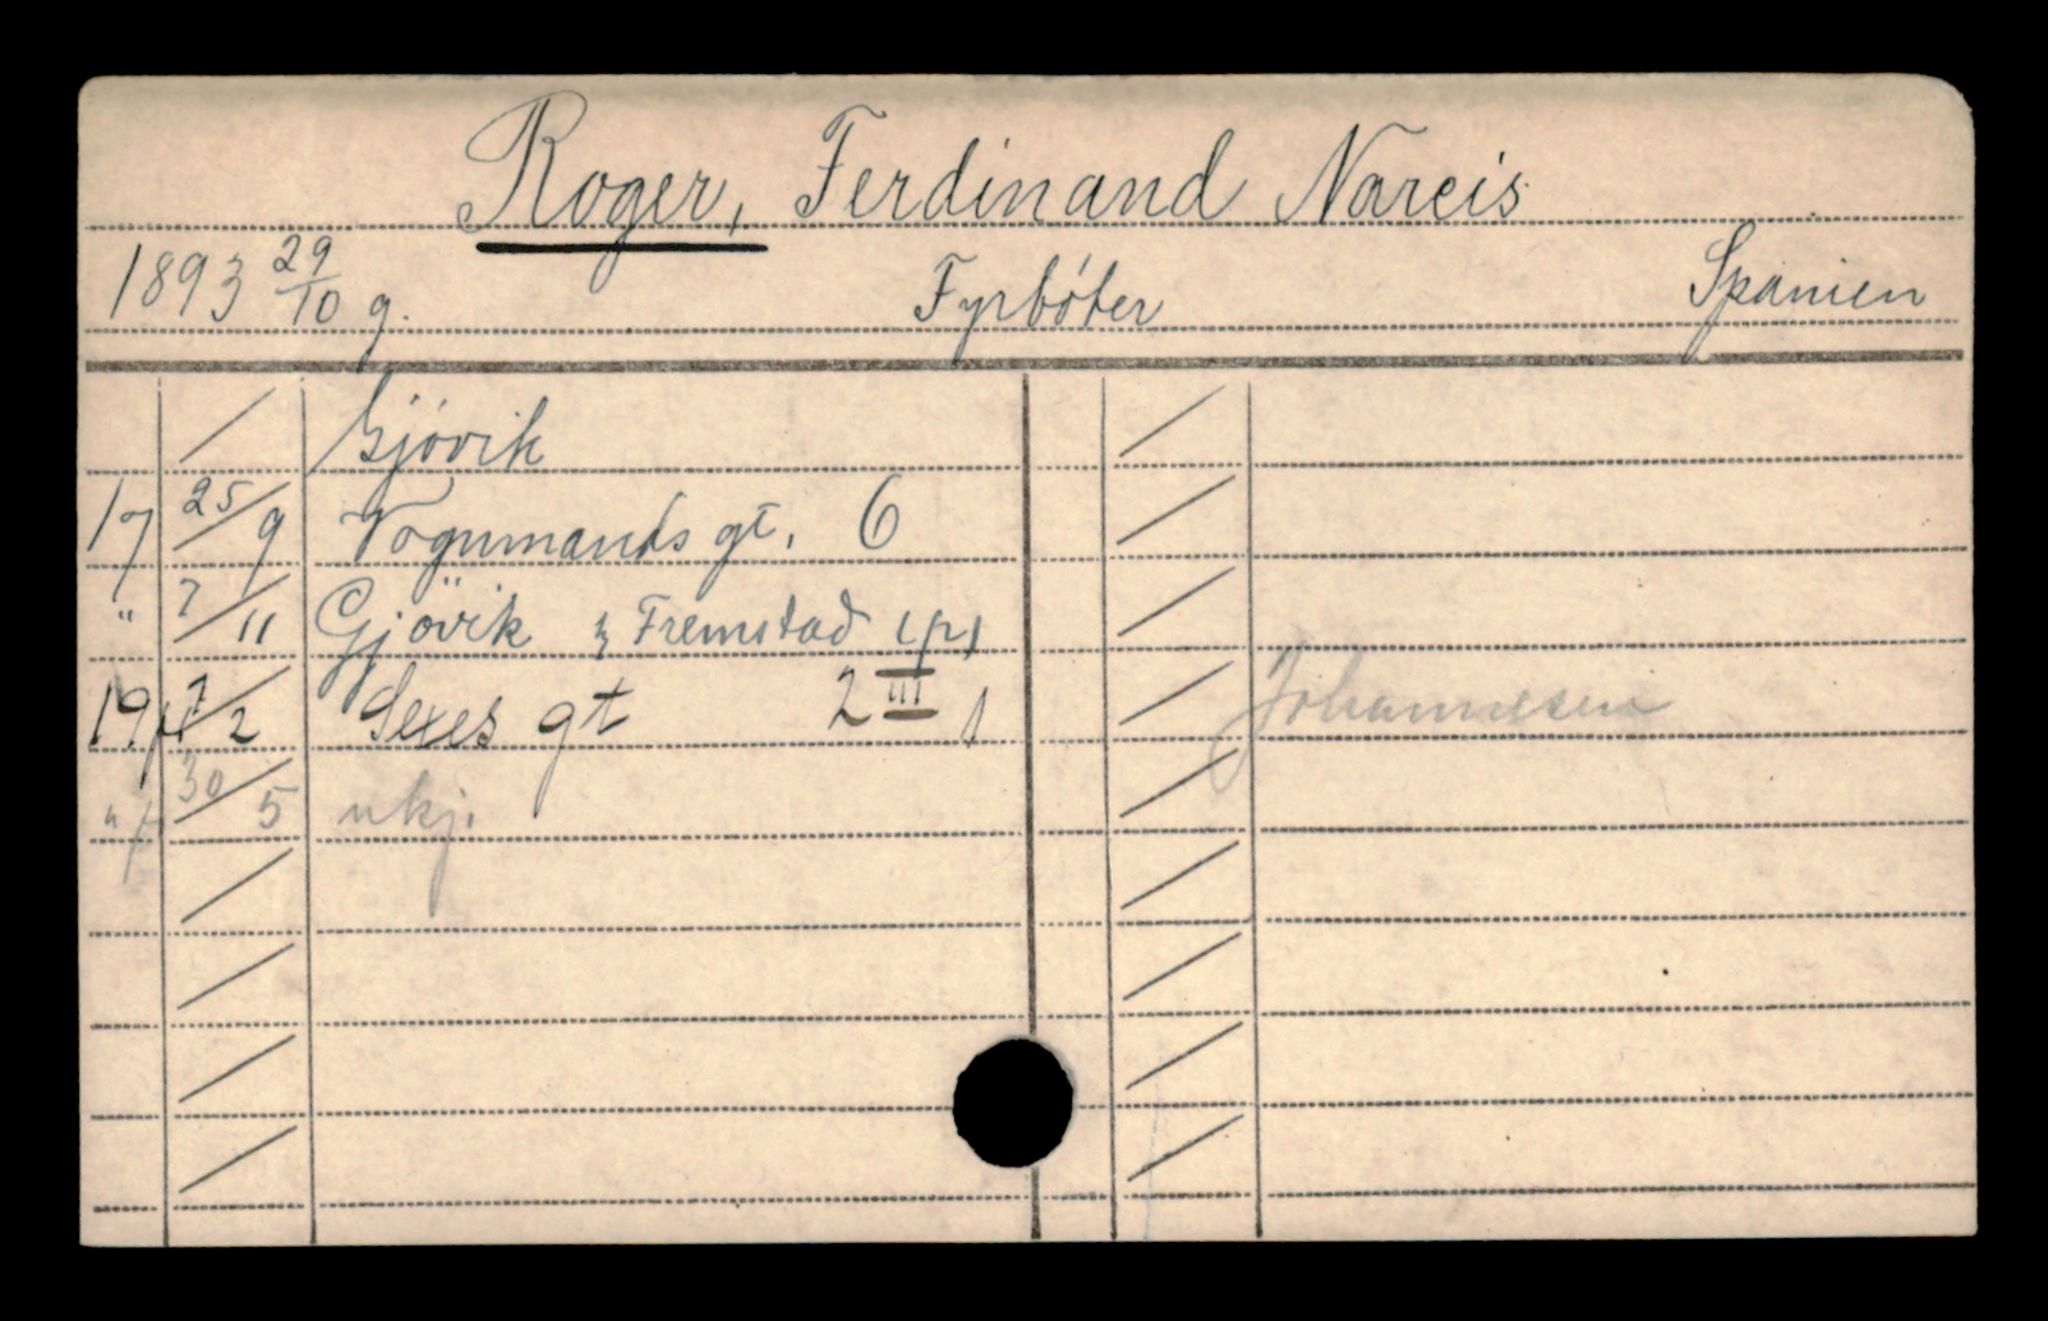 Roger, Ferdinand Narcis
1893 29/10 g. Fyrbóter Spanien
Gjóvik
17 25/9 Vognmands gt. 6
" 7/11 Gjövik Fremstad
19 7/2 Sexes gt 2 III
" 30/5 ukj.
Johannesen